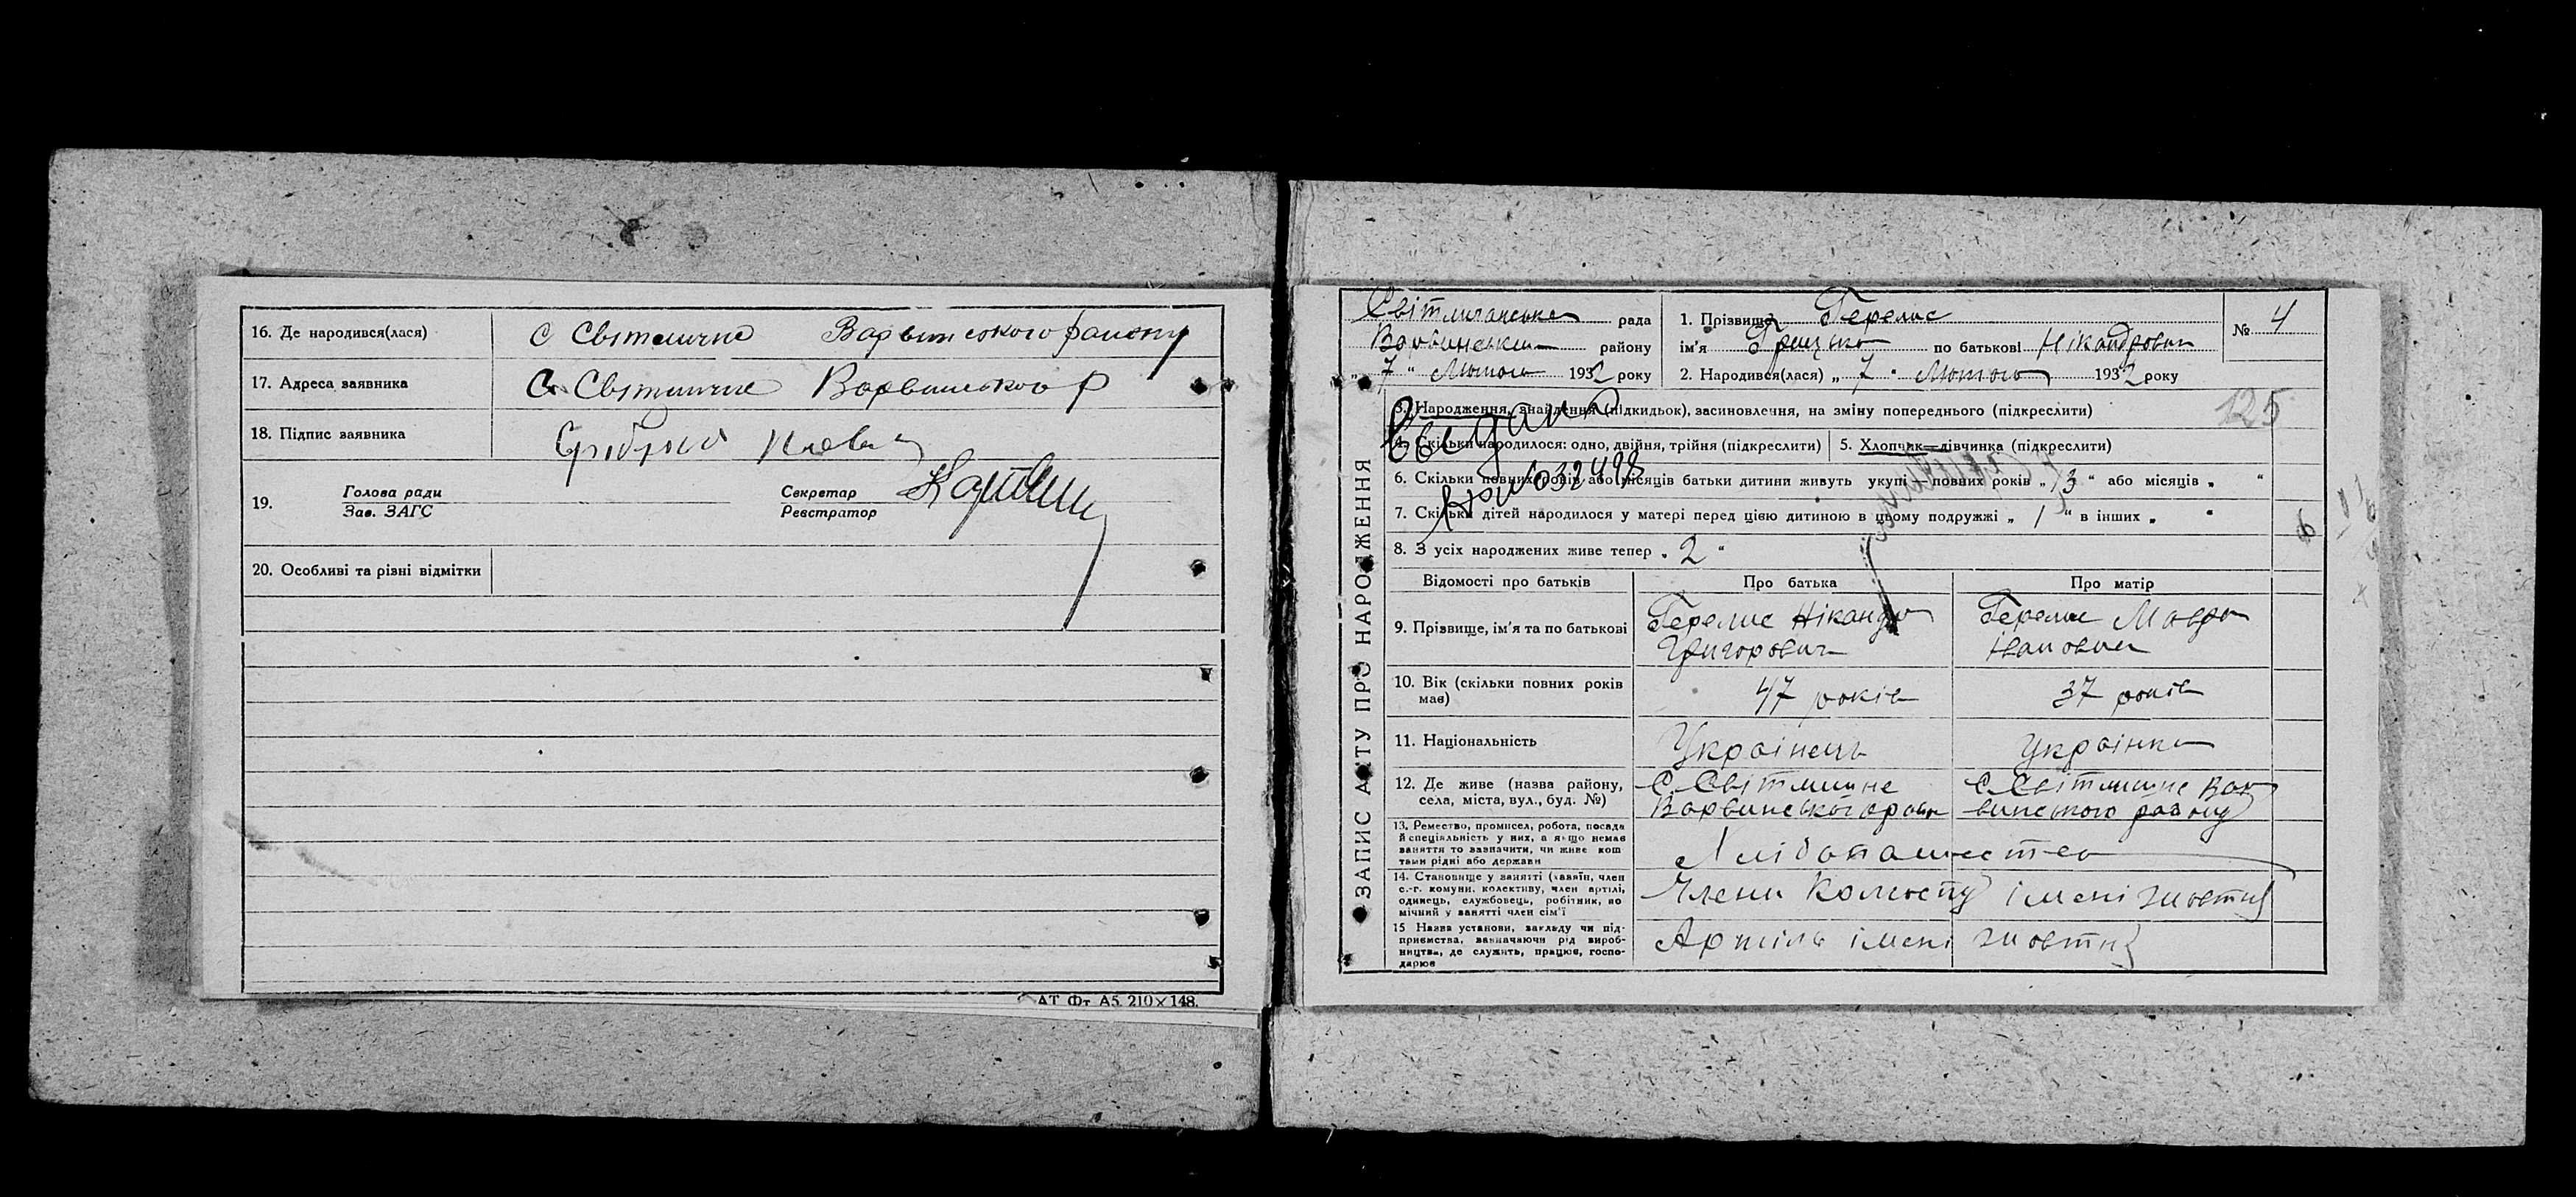 16. Де народився(лася) С Світличне Варвинського району
17. Адреса заявника С Світличне Варвинського р
18. Підпис заявника
19. Голова ради
Зав. ЗАГС
Секретар
Реєстратор
20. Особливі та різні відмітки
АТ Фт А5. 210×148.
ЗАПИС АКТУ ПРО НАРОДЖЕННЯ
Світличанська рада
Варвинський району
„ 7 “ Лютого 1932 року
1. Прізвище Гереле
ім'я Грицько по батькові Нікандрович
2. Народився(лася) „ 7 “ Лютого 1932 року
№ 4
125
3. Народження, знайдення (підкидьок), засиновлення, на зміну попереднього (підкреслити)
4. Скільки народилося: одно, двійня, трійня (підкреслити)
5. Хлопчик—дівчинка (підкреслити)
6. Скільки повних років або місяців батьки дитини живуть укупі — повних років „ 13 “ або місяців „ “
7. Скільки дітей народилося у матері перед цією дитиною в цьому подружжі „ 1 “ в інших „ “
8. З усіх народжених живе тепер „ 2 “
Відомості про батьків
Про батька
Про матір
9. Прізвище, ім'я та по батькові
Нікандр
Григорович
Мавра
Івановна
10. Вік (скільки повних років має)
47 років
37 років
11. Національність
Українець
Українка
12. Де живе (назва району, села, міста, вул., буд. №)
С Світличне
Варвинського район
С Світличне Вар
винського району
13. Ремество, промисел, робота, посада й спеціальність у них, а якщо немає заняття то зазначити, чи живе коштами рідні або держави
Хлібопашество
14. Становище у занятті (хазяїн, член с.-г. комуни, колективу, член артілі, одинець, службовець, робітник, помічний у занятті член сім'ї
Члени Колгоспу імені жовтня
15 Назва установи, закладу чи підприємства, зазначаючи рід виробництва, де служить, працює, господарює
Артіль імені жовтня